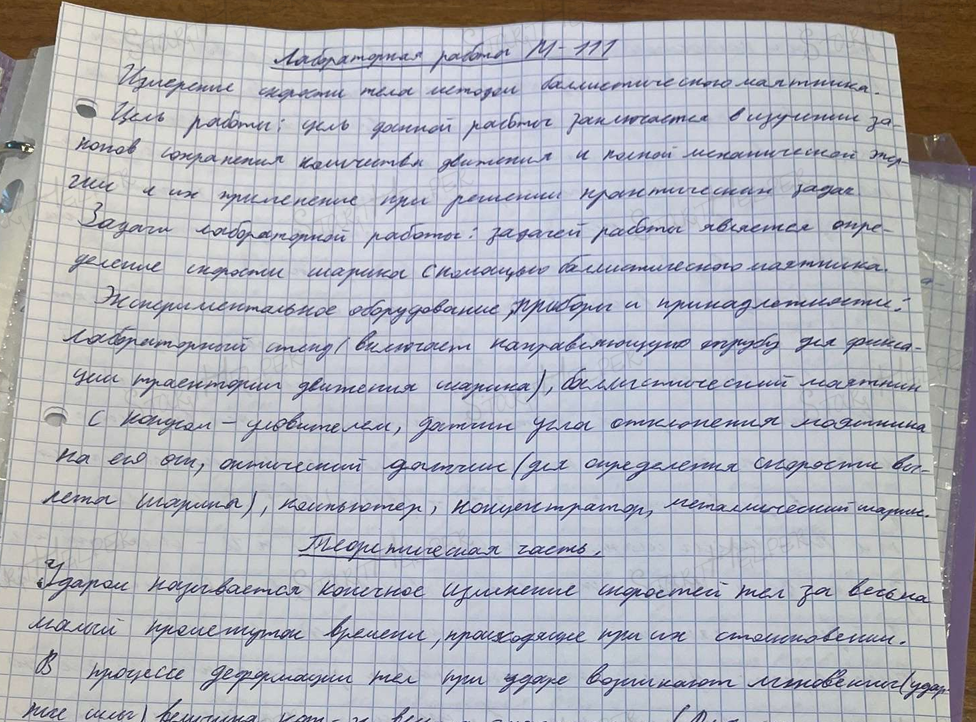 Лабораторная работа М-111
Измерение скорости тела методом баллистического маятника.
Цель работы: цель данной работы заключается в изучении за-
конов сохранения количества движения и полной механической энер-
гии и их применение при решении практических задач
Задачи лабораторной работы: задачей работы является опре-
деление скорости шарика с помощью баллистического маятника.
Экспериментальное оборудование, приборы и принадлежности:
лабораторный стенд (включает направляющую трубу для фикса-
ции траектории движения шарика), баллистический маятник
с -уловителем, датчик угла отклонения маятника
на его оси, оптический датчик (для определения скорости вы-
лета шарика), компьютер, концентратор, металлический шарик.
Теоретическая часть.
Ударом называется конечное изменение скоростей тел за весьма
малый промежуток времени, происходящее при их столкновении.
В процессе деформации тел при ударе возникают мгновенные (удар-
ные силы) величина